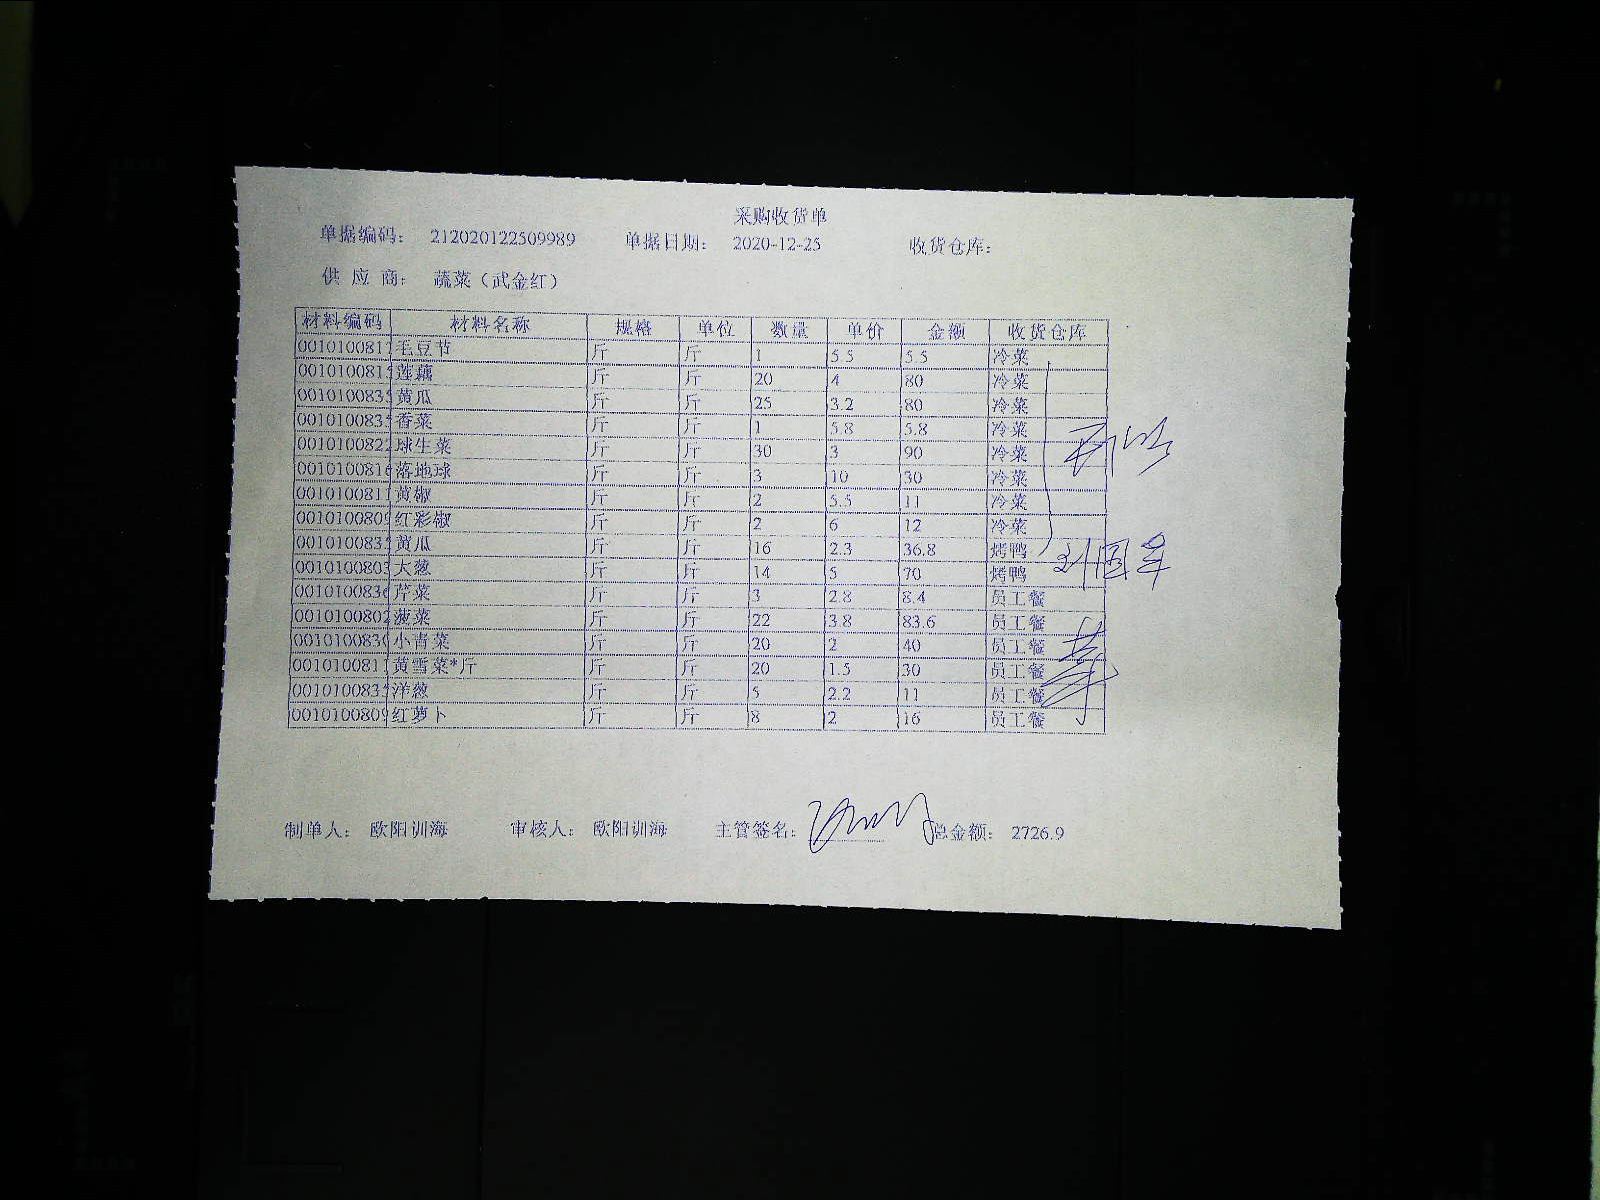 采购收货单
单据编码： 212020122509989 单据日期： 2020-12-25 收货仓库：
供 应 商： 蔬菜（武金红）
材料编码 材料名称 规格 单位 数量 单价 金额 收货仓库
001010081 毛豆节 斤 斤 1 5.5 5.5 冷菜
001010081 莲藕 斤 斤 20 4 80 冷菜
001010083 黄瓜 斤 斤 25 3.2 80 冷菜
001010083 香菜 斤 斤 1 5.8 5.8 冷菜
001010082 球生菜 斤 斤 30 3 90 冷菜
001010081 落地球 斤 斤 3 10 30 冷菜
001010081 黄椒 斤 斤 2 5.5 11 冷菜
001010080 红彩椒 斤 斤 2 6 12 冷菜
001010083 黄瓜 斤 斤 16 2.3 36.8 烤鸭
001010080 大葱 斤 斤 14 5 70 烤鸭
001010083 芹菜 斤 斤 3 2.8 8.4 员工餐
001010080 菠菜 斤 斤 22 3.8 83.6 员工餐
001010083 小青菜 斤 斤 20 2 40 员工餐
001010081 黄雪菜*斤 斤 斤 20 1.5 30 员工餐
001010083 洋葱 斤 斤 5 2.2 11 员工餐
001010080 红萝卜 斤 斤 8 2 16 员工餐
制单人： 欧阳训海 审核人： 欧阳训海 主管签名： 总金额： 2726.9